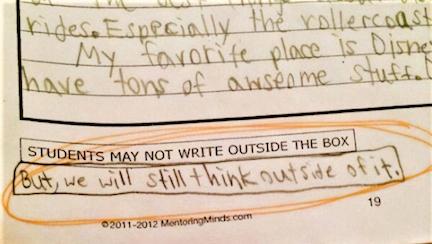 rides. Especially the rollercoast
My favorite place is Disne
have tons of awseome stuff.
STUDENTS MAY NOT WRITE OUTSIDE THE BOX
But, we will still think outside of it.
19
©2011-2012 MentoringMinds.com